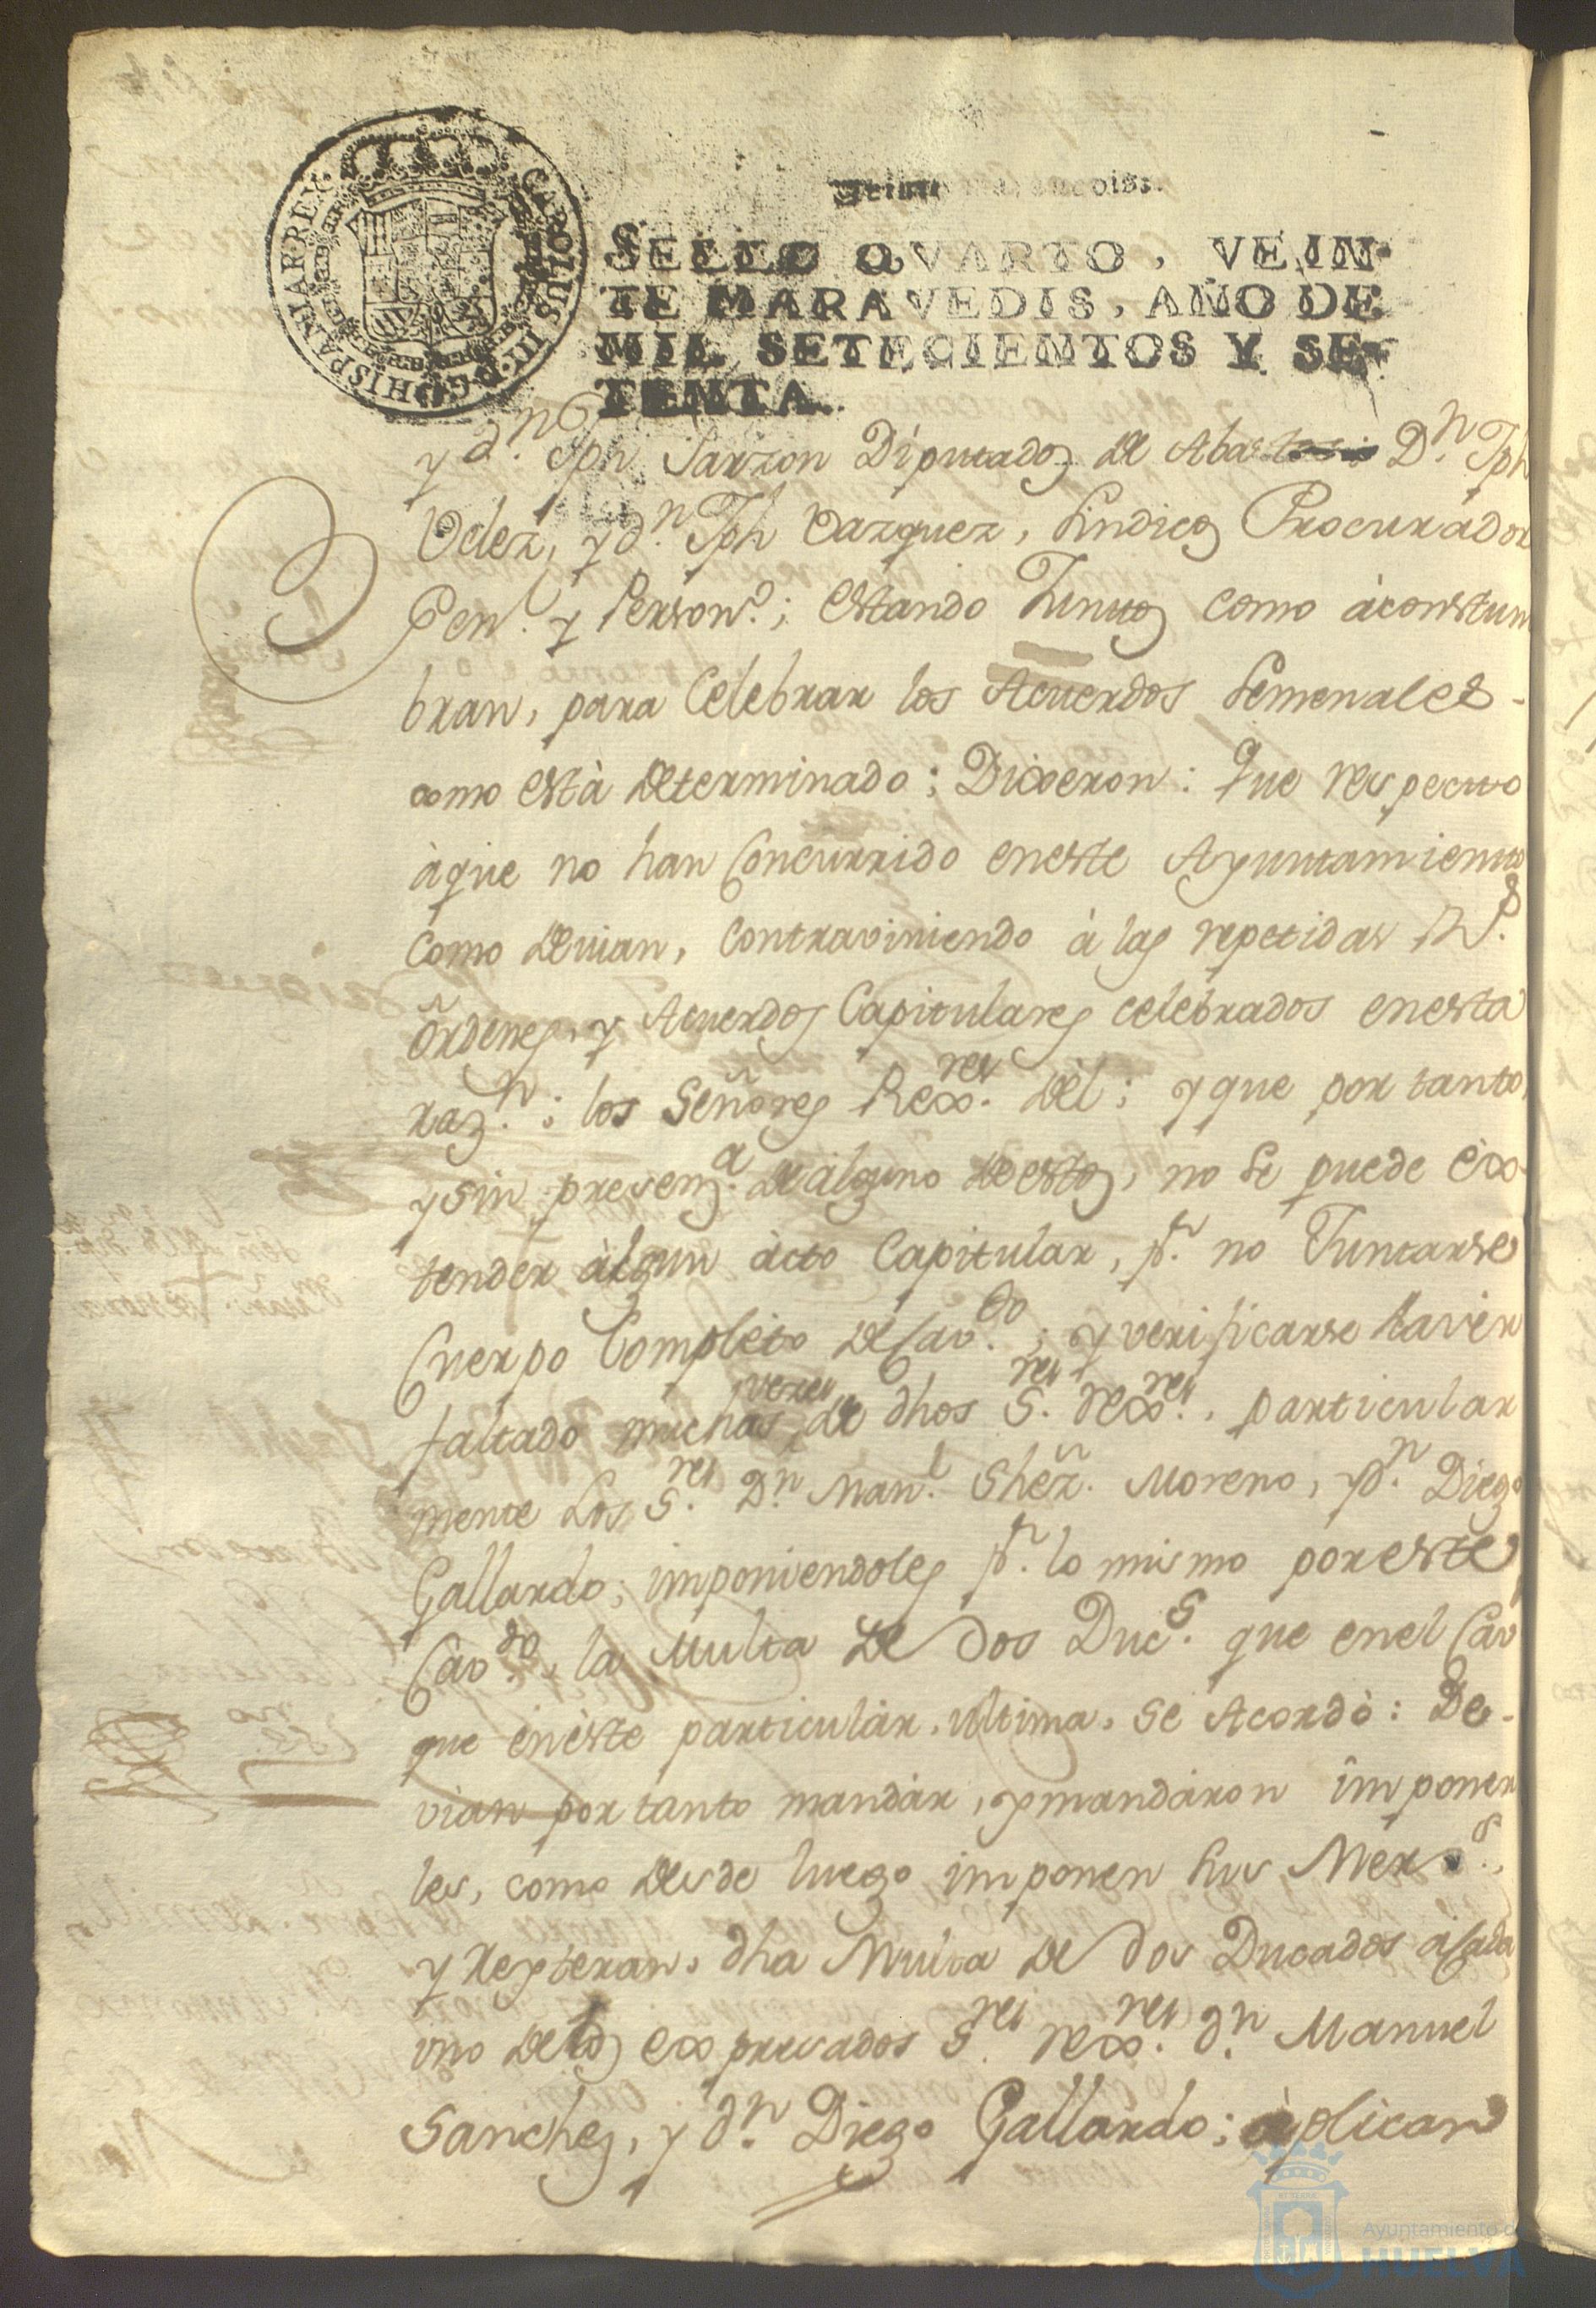 CAROLUS III D.G. HISPANIAR. REX
SELLO QVARTO, VEIN-
TE MARAVEDIS, AÑO DE
MIL SETECIENTOS Y SE-
TENTA.
y dn. Jph Garzon Diputados de Abastos: Dn. Jph
Velez, y dn. Jph Vazquez, Sindicos Procurador
Genl. y Personro.; estando Juntos como àcostum
bran, para Celebrar los Acuerdos Semenales-
como està determinado; Dixeron: Que respecto
àque no han Concurrido eneste Ayuntamiento
como devian, Contraviniendo à las repetidas Rs.
Òrdenes, y Acuerdos Capitulares celebrados enesta
razn.; los Señores Rexres. dèl; y que por tanto,
y sin presenza. de alguno de estos, no se puede èx
tender àlgun àcto Capitular, pr. no Juntarse
Cuerpo Complèto de Cavdo.; y verificarse haver
faltado muchas vezes de dhos Sres. Rexres., particular
mente Los Sres. Dn Manl. Shez. Moreno, y Dn. Diego
Gallardo; imponiendoles pr. lo mismo por este
Cavdo., la Multa de dos Ducs. que enel Cav
que èneste particular, ultima, se Acordò: De-
vian por tanto mandàr, y mandàron imponer
les, como desde luego imponen sus Merds.,
y Reyteran, dha Multa de dos Ducados àCada
uno delos expresados Sres. Rexres. dn. Manuel
Sanchez, y dn. Diego Gallardo; àplican
Ayuntamiento de
HUELVA